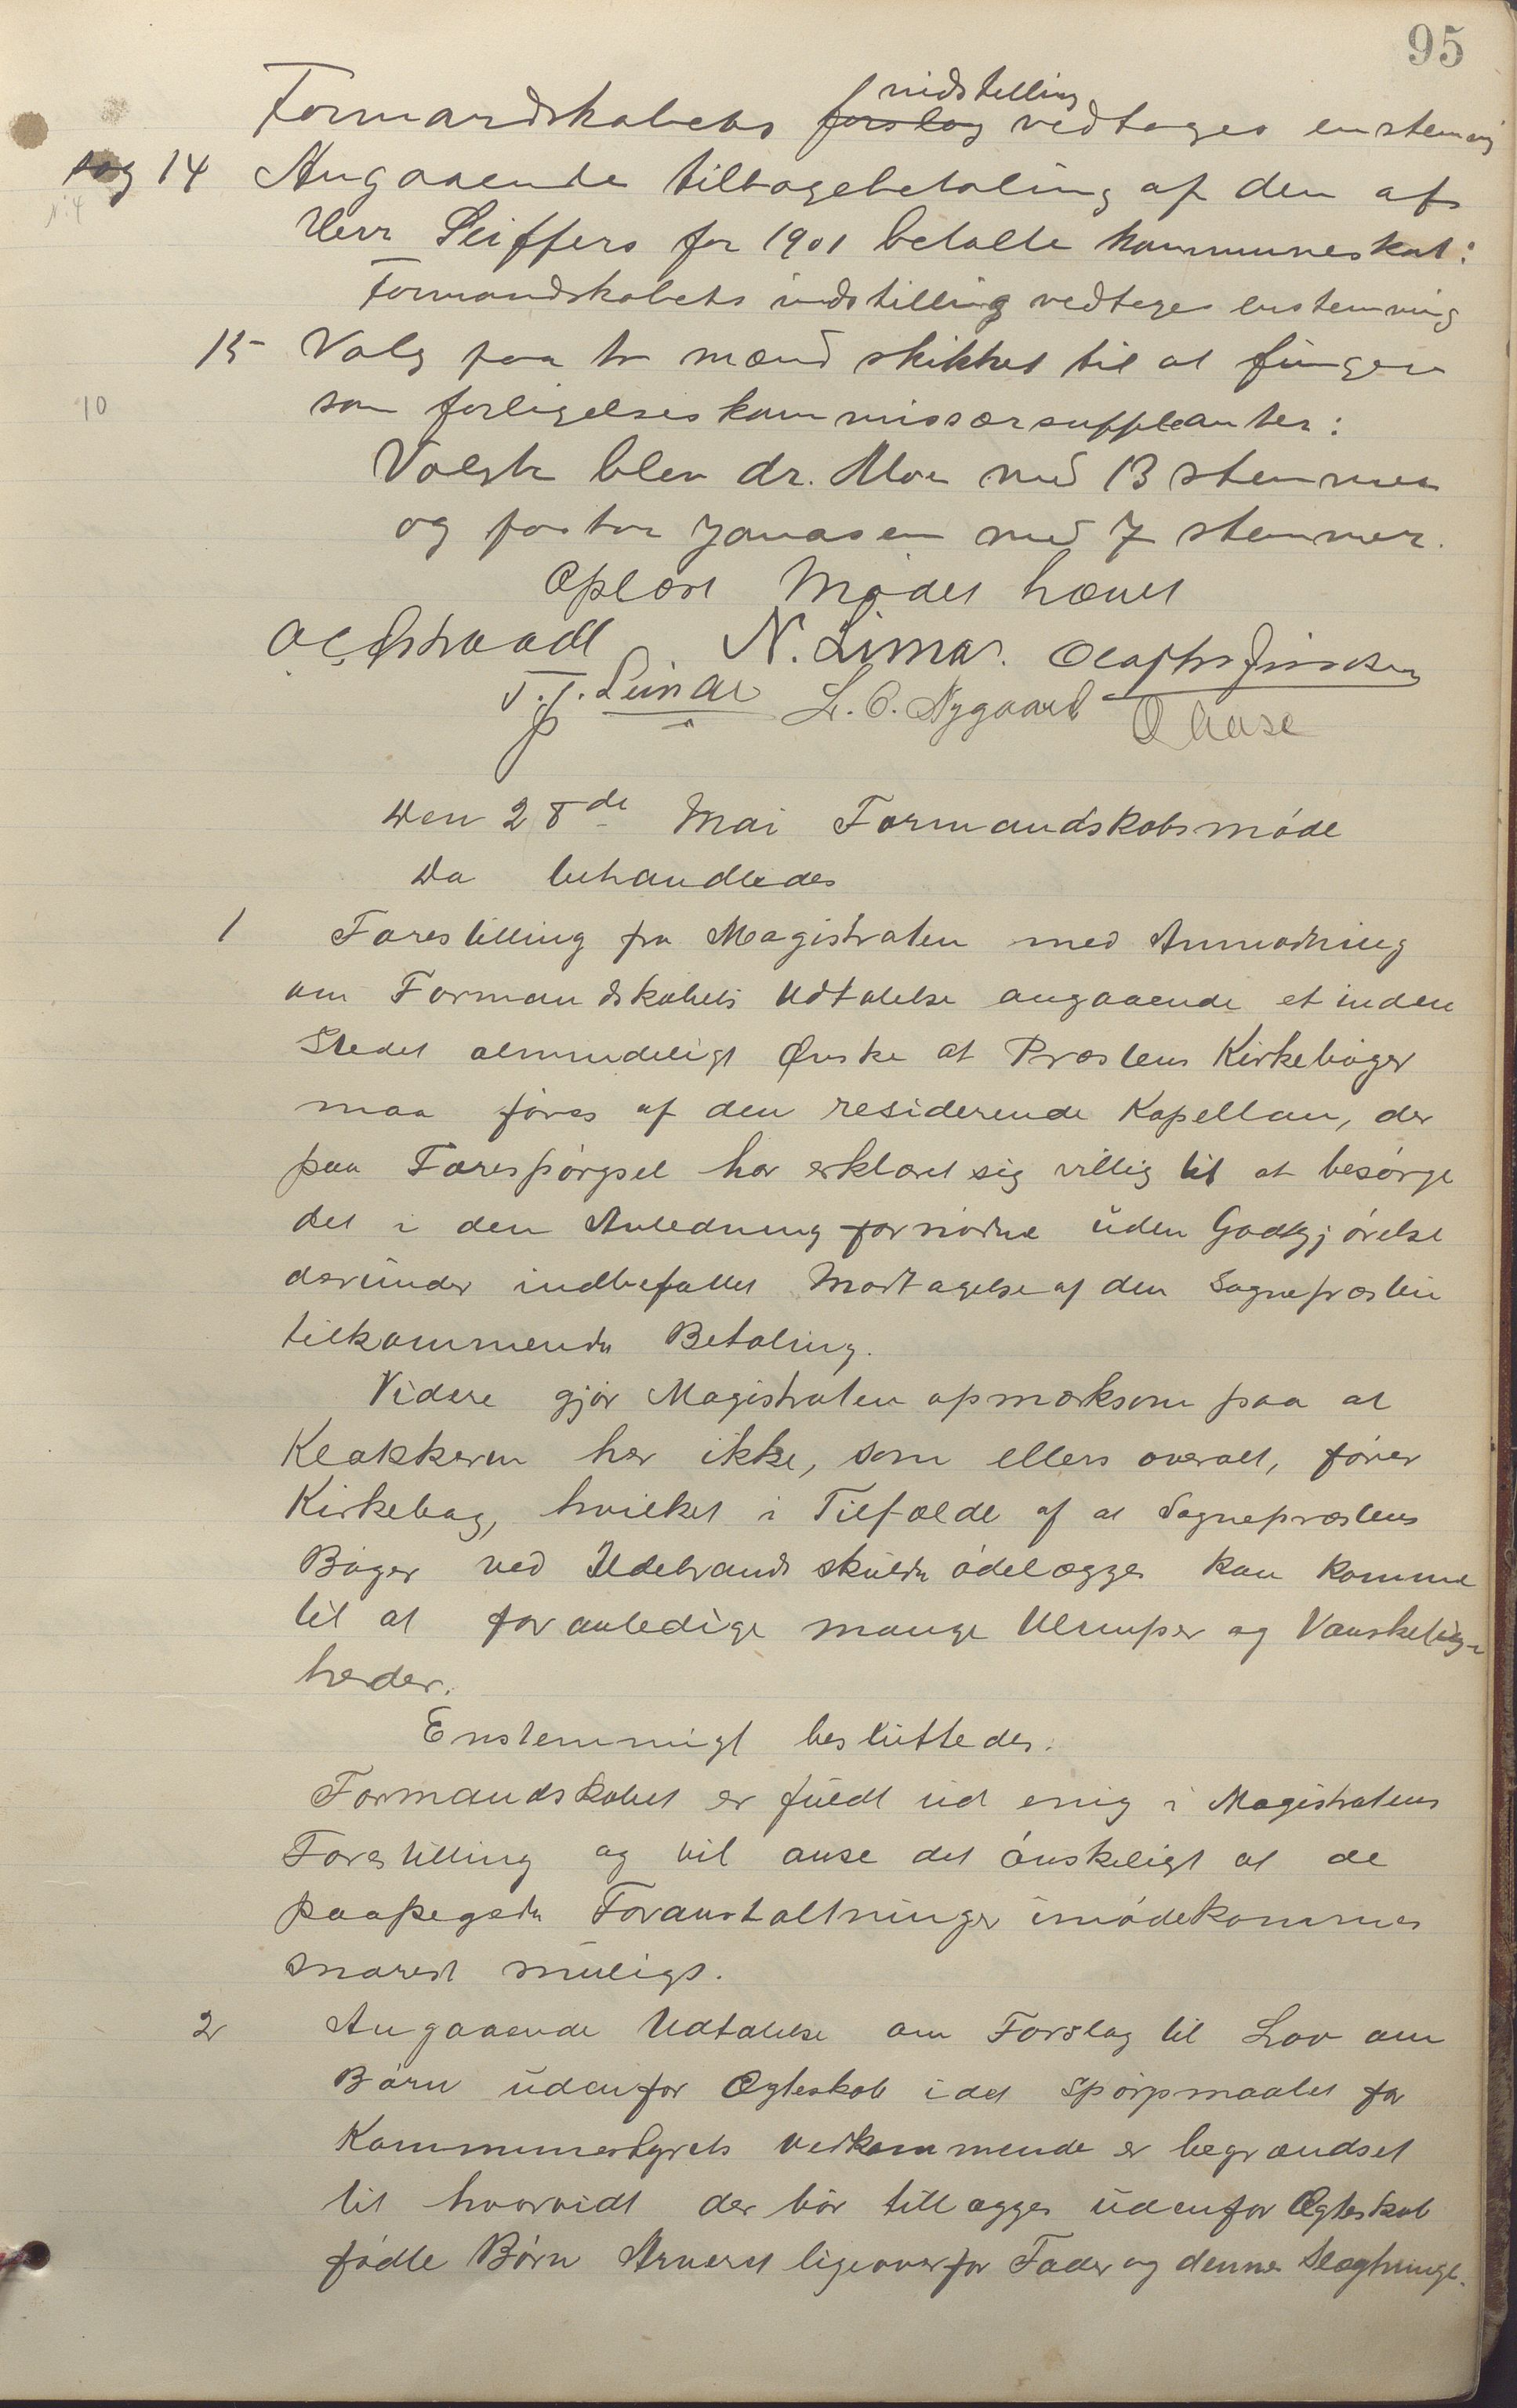 95
indstilling
Formandskabets forslag vedtages enstemmig
sag 14 Angaaende tilbagebetaling af den af
N: 4
Herr Peiffers for 1901 betalte kommuneskat:
Formandskabets indstilling vedtages enstemmig
15 Valg paa to mænd skikket til at fungere
10
som forligelseskommissærsuppleanter:
Valgte blev dr. Moe med 13 stemmer
og pastor Jonasen med 7 stemmer.
Oplæst Mødet hævet
N. Lima.
T. T. Leinæ L. C. Nygaard O Aase
Den 28de Mai Formandskabsmøde
Da behandledes
1 Forestilling fra Magistraten med Anmodning
om Formandskabets Udtalelse angaaende et inden
Stedet almindeligt Ønske at Præstens Kirkebøger
maa føres af den residerende Kapellan, der
paa Forespørgsel har erklæret sig villig til at besørge
det i den Anledning fornødne uden Godtgjørelse
derunder indbefattet Modtagelse af den Sognepræsten
tilkommende Betaling.
Videre gjør Magistraten opmærksom paa at
Klokkeren her ikke, som ellers overalt, fører
Kirkebog, hvilket i Tilfælde af at Sognepræstens
Bøger ved Ildebrand skulde ødelægges kan komme
til at foranledige mange Ulemper og Vanskelig-
heder.
Enstemmigt besluttedes:
Formandskabet er fuldt ud enig i Magistratens
Forestilling og vil anse det ønskeligt at de
paapegede Foranstaltninger imødekommes
snarest muligt.
2 Angaaende Udtalelse om Forslag til Lov om
Børn udenfor Ægteskab idet Spørgsmaalet for
Kommunestyrets vedkommende er begrændset
til hvorvidt der bør tillægges udenfor Ægteskab
fødte Børn Arveret ligeoverfor Fader og dennes Slægtninge.